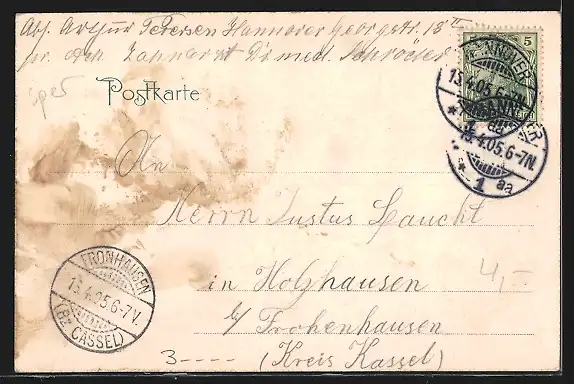 Abs. Arthur Petersen Hannover Georgstr. 13 II
pr. adr. Zahnarzt Dr. med. Schröder
5
HANNOVER
13.4.05.6-7N.
HANNOVER
13.4.05.6-7N
* 1 aa
Postkarte
An
Herrn Justus Laucht
in Holzhausen
b/ Frohenhausen
(Kreis Kassel)
4,-
3----
FRONHAUSEN
13.4.05.6-7V.
(BZ. CASSEL)